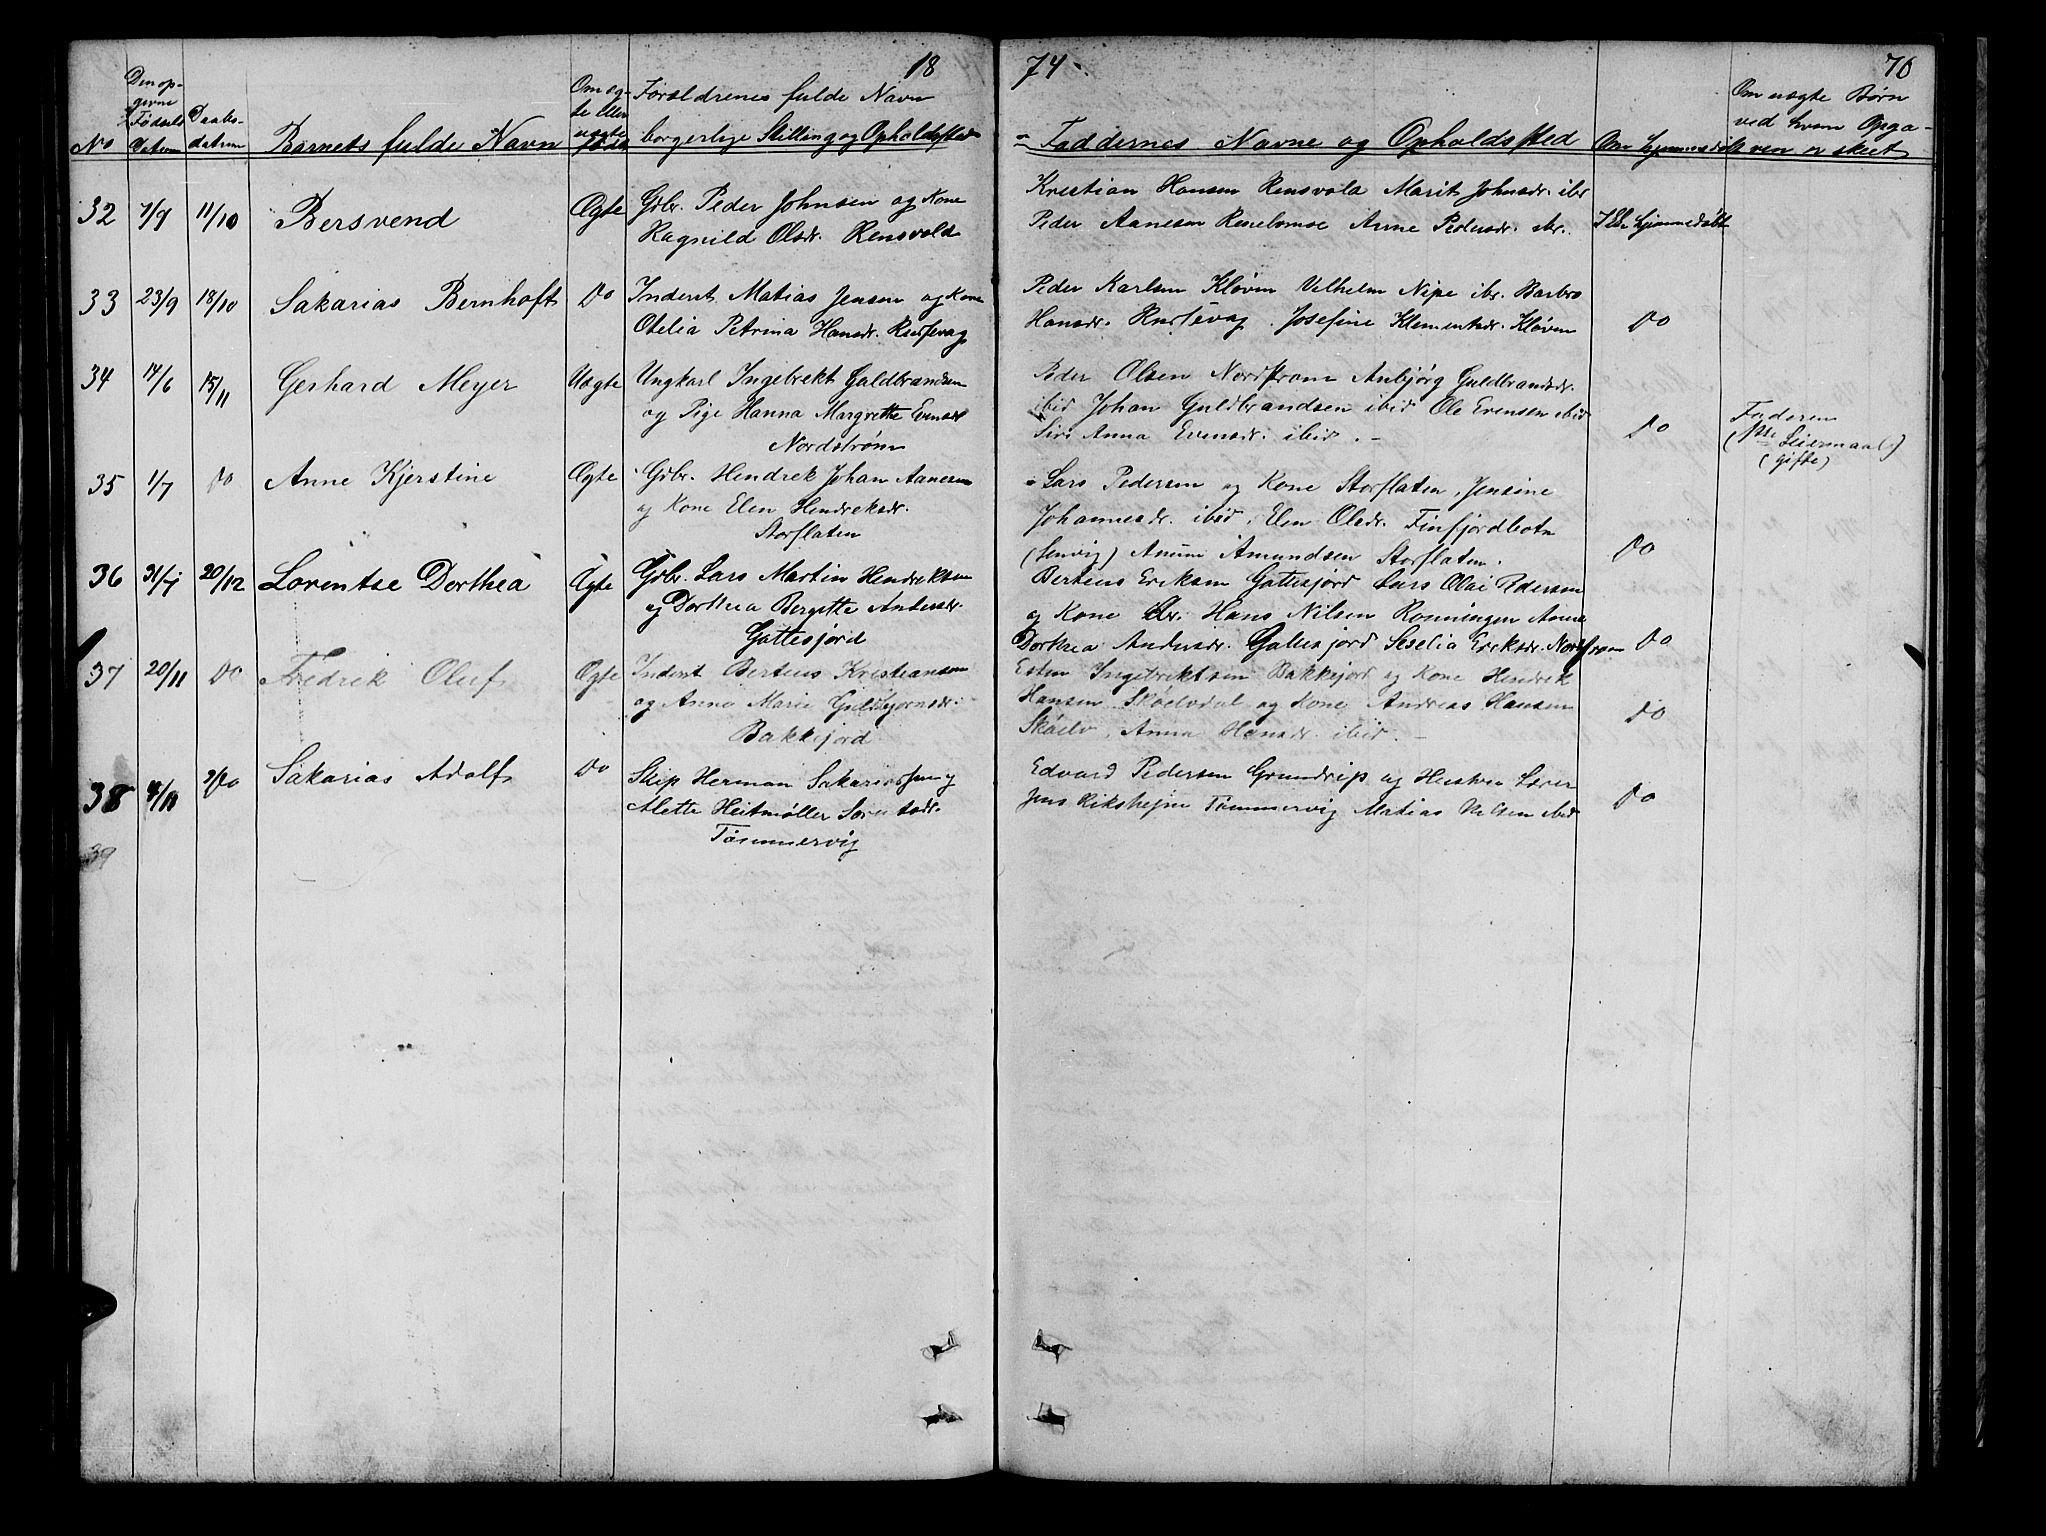 18 74 70
No
Den op-
givne
Fødsels
Datum
Daabs-
datum
Barnets fulde Navn
Om æg-
te eller
uægte
født
Forældrenes fulde Navn
borgerlige Stilling og Opholdssted
Faddernes Navne og Opholdssted
Om hjemmedøbt
Om uægte Børn
ved hvem Opga-
ven er skeet
32 7/9 11/10 Bersvend Ægte Gdbr. Peder Johnsen og Kone
Ragnild Olsdr. Rensvold
Kristian Hansen Rensvola Marit Johnsdr. ibr
Peder Aanesen Anne Pedersdr. ibr. Ikke hjemmedøbt
33 23/9 18/10 Sakarias Bernhoft Do Inderst Matias Jensen og Kone
Otelia Petrina Hansdr. Russevag
Peder Karlsen Kløven Vilhelm Nipe ibr. Barbro
Hansdr. Russevag. Josefine Klementsdr. Kløven Do
34 14/6 15/11 Gerhard Meyer Uægte Ungkarl Ingebrekt Guldbrandsen
og Pige Hanna Margrethe Evensdr
Nordstrøm
Peder Olsen Nordstrøm Anbjørg Guldbrandsdr.
ibid Johan Guldbrandsen ibid Ole Evensen ibid
Siri Anna Evensdr. ibid. - Do
Faderen
(1ste Leiermaal)
(gifte)
35 1/7 Do Anne Kjerstine Ægte Gdbr. Hendrek Johan Aanesen
og Kone Elen Hendreksdr.
Storflaten
Lars Pedersen og Kone Storflaten, Jensine
Johannesdr. ibid, Elen Olsdr. Finfjordbotn
(Lenvig) Amund Amundsen Storflaten. Do
36 31/7 20/12 Lorentse Dorthea Ægte Gdbr. Lars Martin Hendriksen
og Dorthea Bergitte Andersdr.
Gottesjord
Berteus Eriksen Gottesjord Lars Olai Pedersen
og Kone ibr. Hans Nilsen Ronningen Anne
Dorthea Andersdr. Gottesjord Seselia Eriksdr. Nordstrøm Do
37 20/11 Do Fredrik Oluf Ægte Inderst Berteus Kristiansen
og Anna Marie Guldbjornsdr.
Bakkejord
Esten Ingebriktsen Bakkejord og Kone Hendrik
Hansen Skøelvdal og Kone Andreas Hansen
Skøelv, Anna Hansdr. ibid. - Do
38 4/11 Do Sakarias Adolf Do Skip Herman Sakariassen og
Mette Heitmøller
Tømmervig
Edvard Pedersen Grundrip og Hustru Lærer
Jens Rikshejm Tømmervig Matias Nilsen ibid Do
39